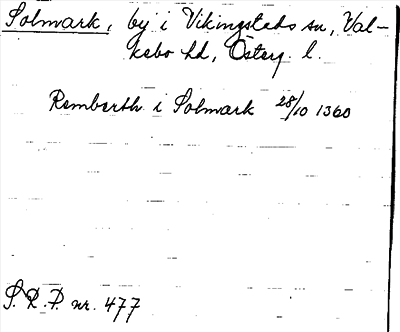 Solmark, by i Vikingstads sn, Val-
kebo hd, Österg. l.
Remberth i Solmark 28/10 1360
S. R. P. nr. 477